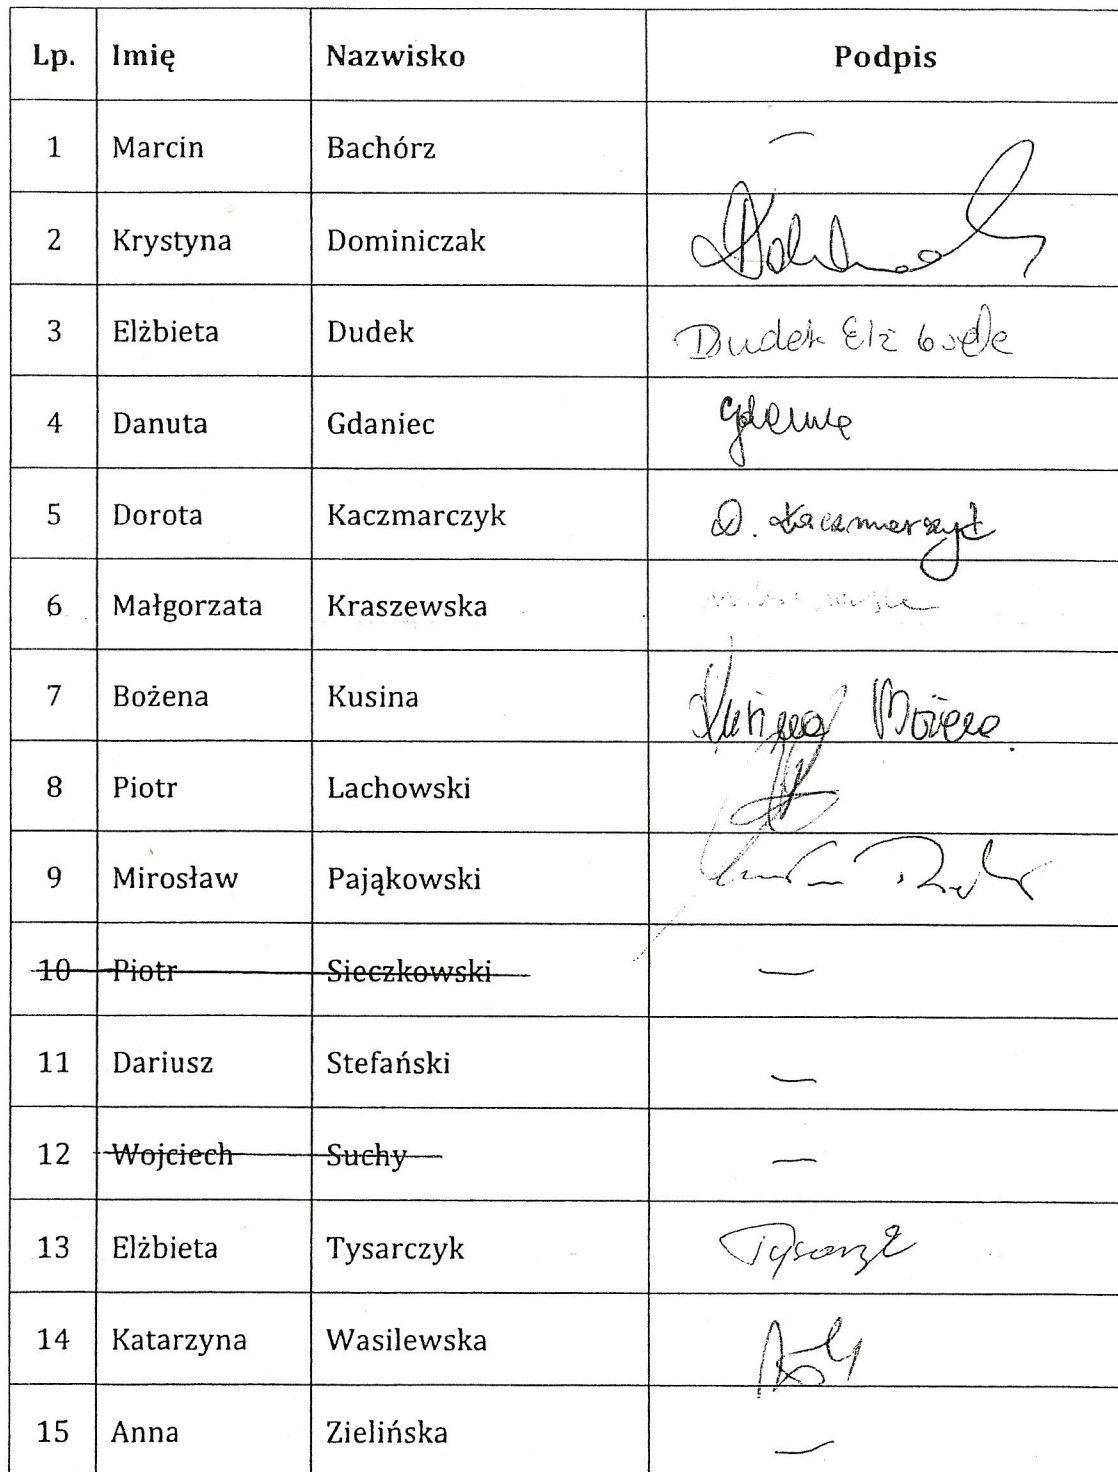 Lp. Imię Nazwisko Podpis
1 Marcin Bachórz —
2 Krystyna Dominiczak
3 Elżbieta Dudek Dudek Elżbieta
4 Danuta Gdaniec
5 Dorota Kaczmarczyk D. Kaczmarczyk
6 Małgorzata Kraszewska
7 Bożena Kusina Kusina Bożena
8 Piotr Lachowski
9 Mirosław Pająkowski
10 Piotr Sieczkowski —
11 Dariusz Stefański —
12 Wojciech Suchy —
13 Elżbieta Tysarczyk
14 Katarzyna Wasilewska
15 Anna Zielińska —